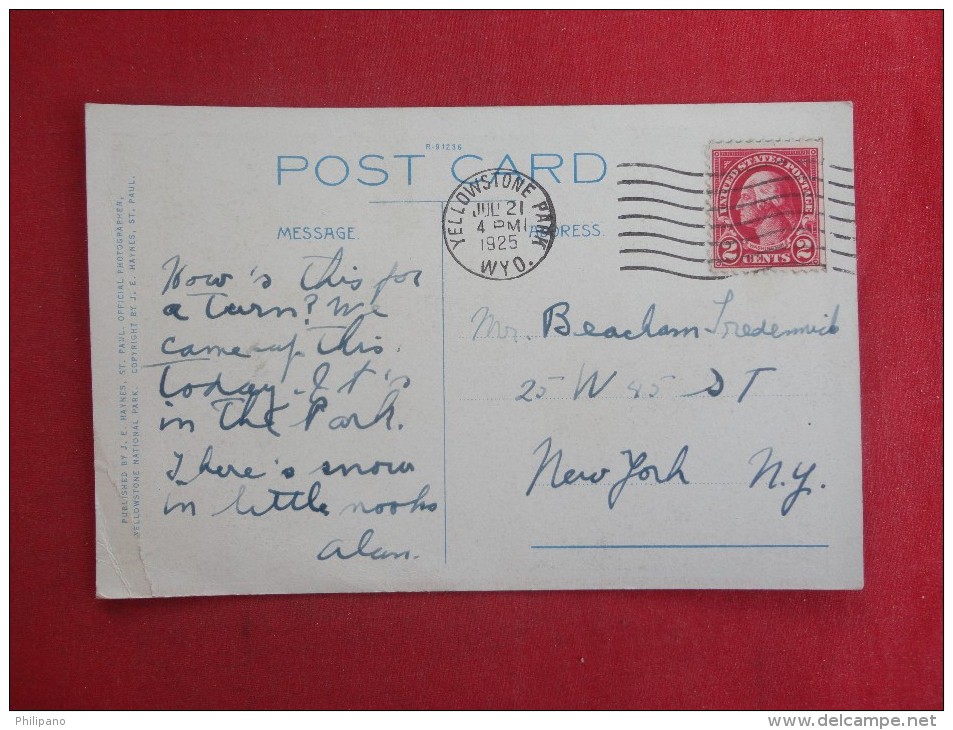 R-51256
POST CARD
MESSAGE
ADDRESS.
YELLOWSTONE PARK
JUL 21
4 PM
1925
WYO.
UNITED STATES POSTAGE
2 CENTS 2
PUBLISHED BY J. E. HAYNES, ST. PAUL, OFFICIAL PHOTOGRAPHER,
YELLOWSTONE NATIONAL PARK. COPYRIGHT BY J. E. HAYNES, ST. PAUL.
How's this for
a turn? We
came up this
today. It's
in the Park.
There's snow
in little nooks
Alan.
Mr. Beacham
25 W 45 ST
New York N.Y.
Philipano
www.delcampe.net